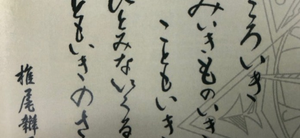 ろいき
みいきものいき
こともいき
ひとみないくる
ともいきのさ
椎尾辨